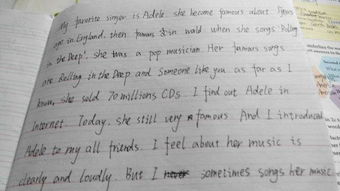 My favorite singer is Adele. she become famous about 7years
ago in England. then famous in wald when she songs "Rolling
in the Deep". she was a pop musician. Her famous songs
are Rolling in the Deep and Someone like you as far as I
know, she sold 70 millions CDs. I find out Adele in
Internet. Today. she still very famous. And I introduced
Adele to my all friends. I feel about her music is
clearly and loudly. But I sometimes songs her music